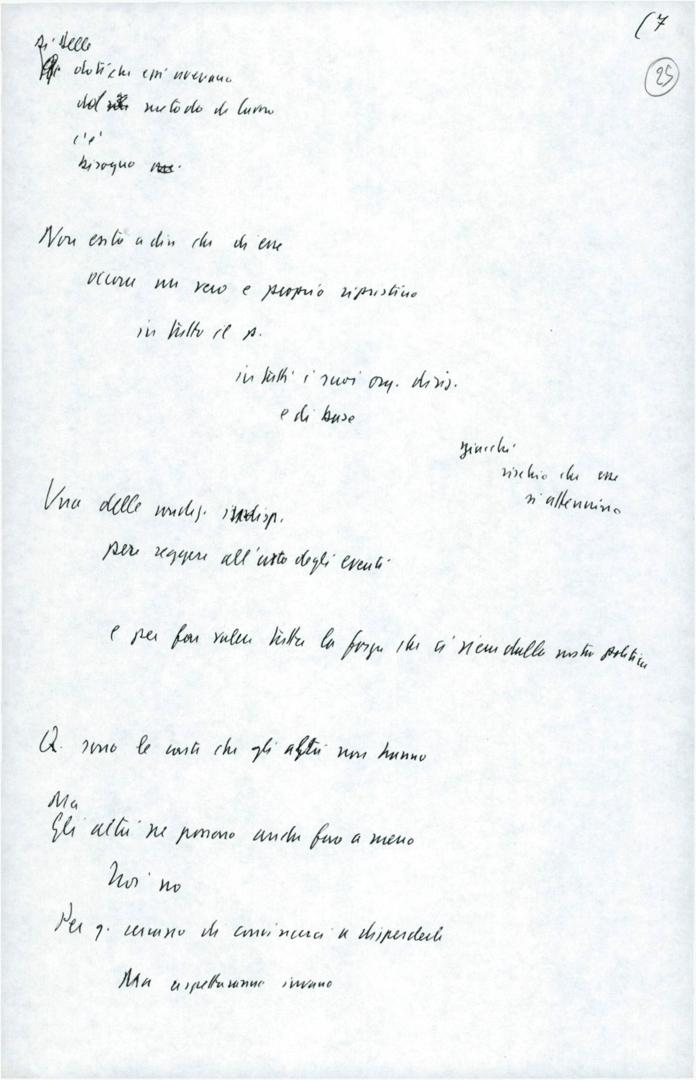 (7
25
di delle
doti che essi avevano
dal metodo di lavoro
c'è
bisogno
Non esito a dire che di esse
occorre un vero e proprio ripristino
in tutto il p.
in tutti i suoi org. dirig.
e di base
giacchè
rischio che esse
si attenuino
Una delle condiz. indisp.
per reggere all'urto degli eventi
e per far valere tutta la forza che ci viene dalla nostra politica
Q. sono le carte che gli altri non hanno
Ma
Gli altri ne possono anche fare a meno
Noi no
Per q. cercano di convincerci a disperderle
Ma aspetteranno invano